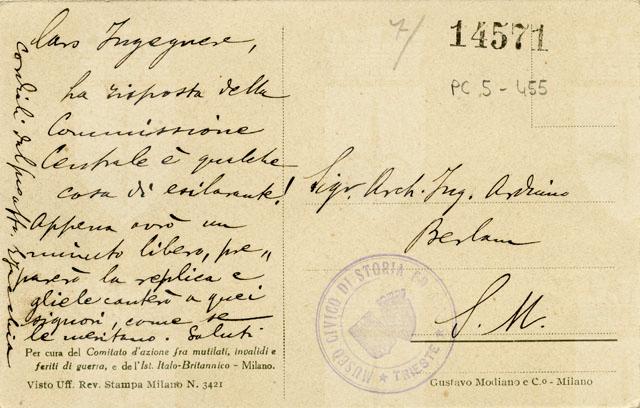 7/
14571
PC 5 - 455
Caro Ingegnere,
la risposta della
Commissione
Centrale è qualche
cosa di esilarante!
Appena avrò un
minuto libero, pre„
parerò la replica e
gliele canterò a quei
signori, come se
le meritano. Saluti
cordiali dal suo aff.
Sigr. Arch. Ing. Arduino
Berlam
S. M.
MUSEO CIVICO DI STORIA ED
★ TRIESTE ★
Per cura del Comitato d'azione fra mutilati, invalidi e
feriti di guerra, e de l'Ist. Italo-Britannico - Milano.
Visto Uff. Rev. Stampa Milano N. 3421
Gustavo Modiano e C.o - Milano